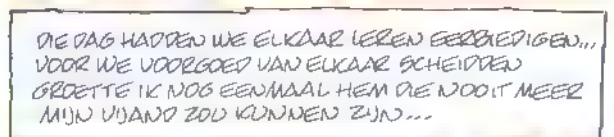 DIE DAG HADDEN WE ELKAAR LEREN EERBIEDIGEN...
VOOR WE VOORGOED VAN ELKAAR SCHEIDDEN
GROETTE IK NOG EENMAAL HEM DIE NOOIT MEER
MIJN VIJAND ZOU KUNNEN ZIJN...